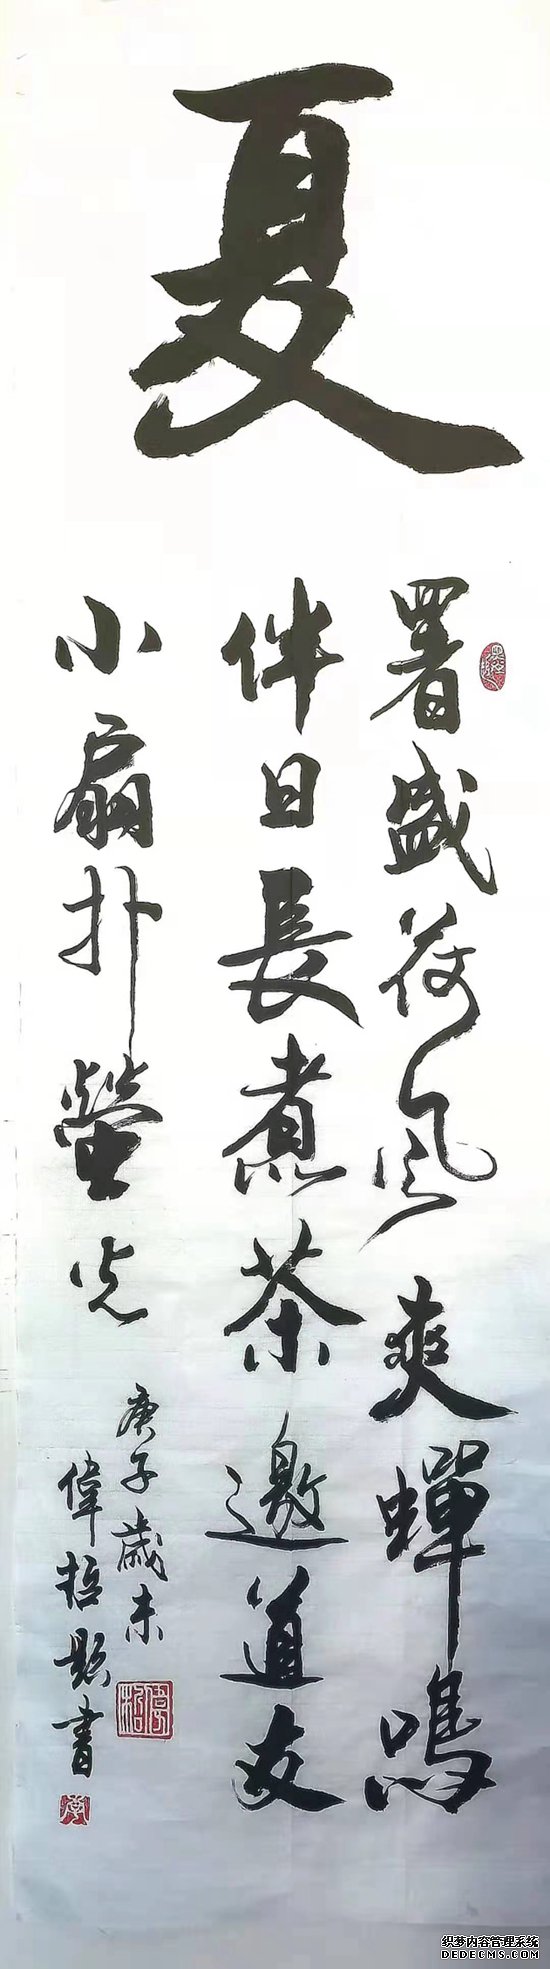 夏
署盛荷风爽蟬鳴
伴日長煮茶邀道友
小扇扑螢光
庚子歲末
偉哲題書
织梦内容管理系统
DEDECMS.COM